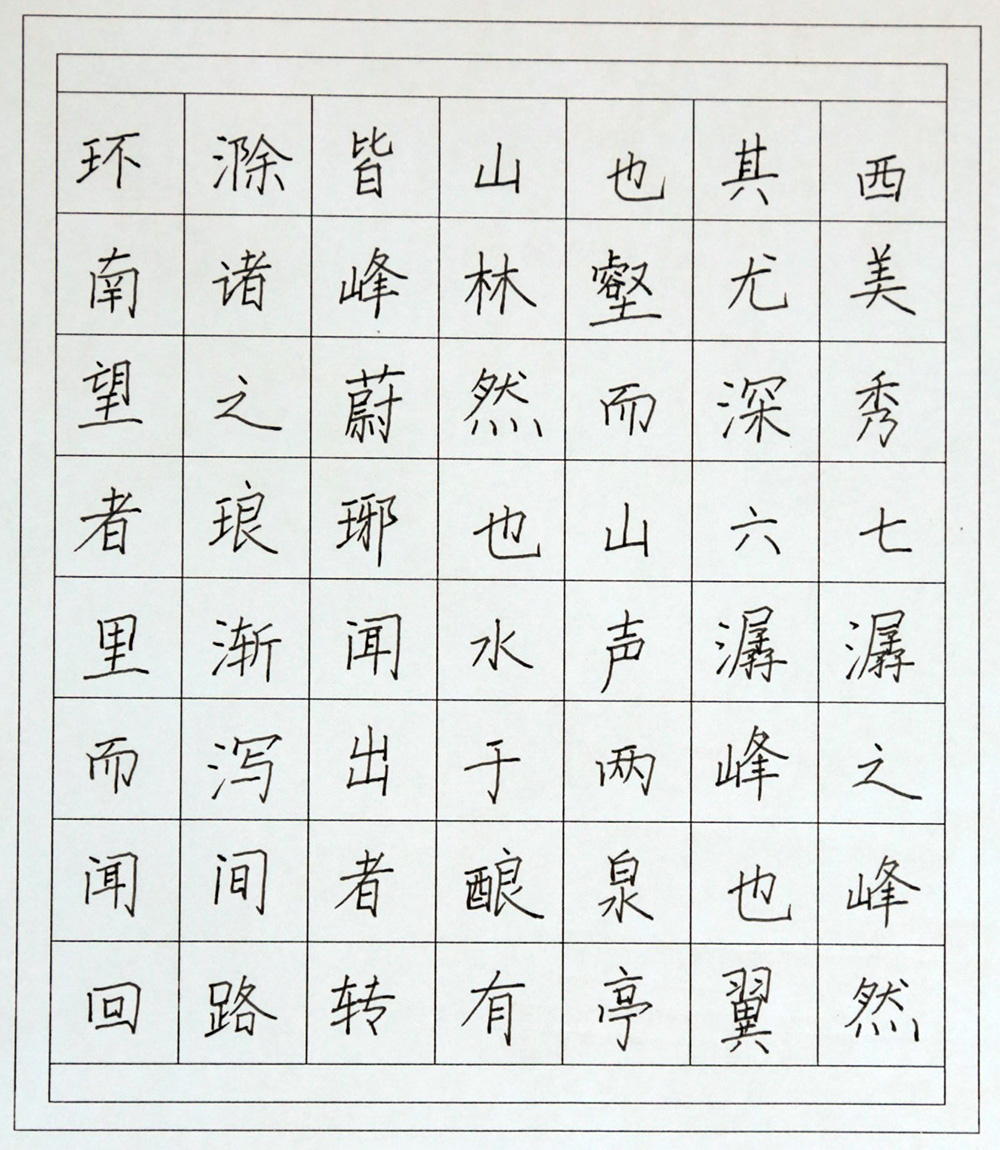 环滁皆山也其西
南诸峰林壑尤美
望之蔚然而深秀
者琅琊也山六七
里渐闻水声潺潺
而泻出于两峰之
闻间者酿泉也峰
回路转有亭翼然